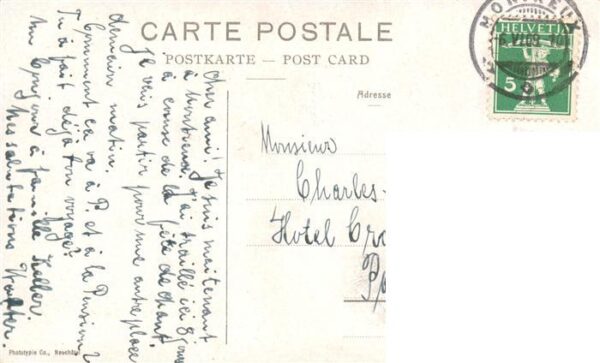 CARTE POSTALE
POSTKARTE — POST CARD
Adresse
MONTREUX
VI.09
HELVETIA
5
Monsieur
Charles-
Hotel
Cher ami! Je suis maintenant
à Montreux. J'ai travaillé ici 8 jours
à cause de la fête de chant.
Je veux partir pour une autre place
demain matin.
Comment ça va à P. et à la Pension?
Tu a fait déjà ton voyage?
Un bonjour à famille Keller.
Mes salutations Walter.
Phototypie Co., Neuchâtel